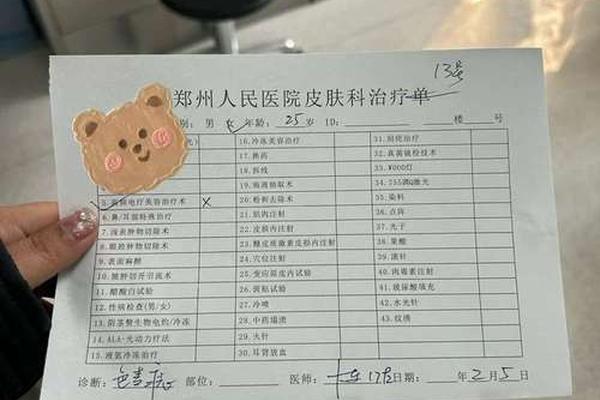 13号
郑州人民医院皮肤科治疗单
别：男 女✓ 年龄：25岁 ID： 楼 号
16.冷冻美容治疗 31.同焊治疗
17.换药 32.真菌镜检技术
18.拆线 33.W000灯
19.病损抽取术 34.755调Q激光
5.高频电疗美容治疗术 x 20.粉刺去除术 35.染料
6.鼻/耳部特殊治疗 21.肌肉注射 36.点阵
7.浅表肿物切除术 22.皮损内注射 37.光子
8.眼睑肿物切除术 23.糖皮质激素皮损内注射 38.果酸
9.表面麻醉 24.穴位注射 39.滚针
10.脓肿切开引流术 25.变应原皮内试验 40.肉毒素注射
11.醋酸白试验 26.斑贴试验 41.玻尿酸填充
12.性病检查(男/女) 27.冷喷 42.水光针
13.阴茎赘生物电灼/冷冻 28.中药塌渍 43.纹绣
14.ALA-光动力疗法 29.火针
15.液氮冷冻治疗 30.耳背放血
诊断： 色素痣 部位： 医师： 日期： 年2月5日